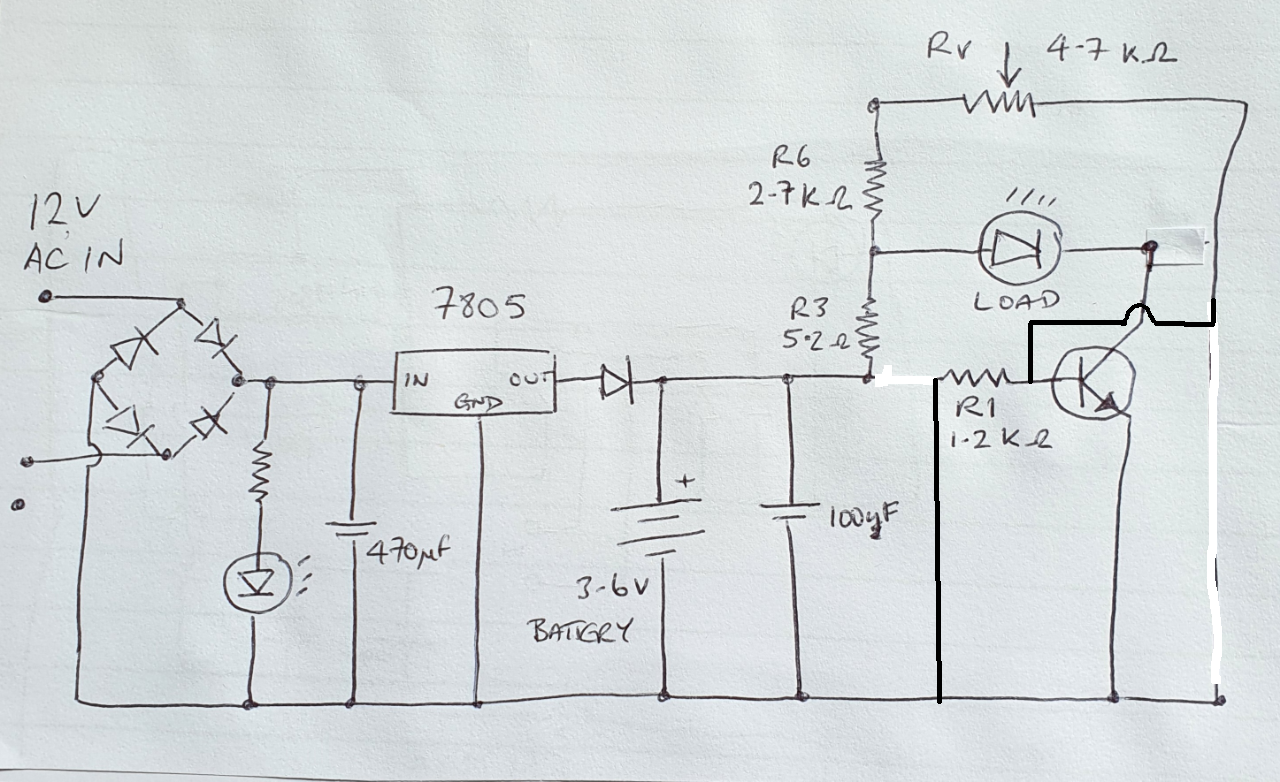 Rv 4-7 KΩ
R6
2-7KΩ
12V
AC IN
7805
LOAD
R3
5.2Ω
IN OUT
GND
R1
1.2 KΩ
+
470µF
100µF
3-6V
BATTERY